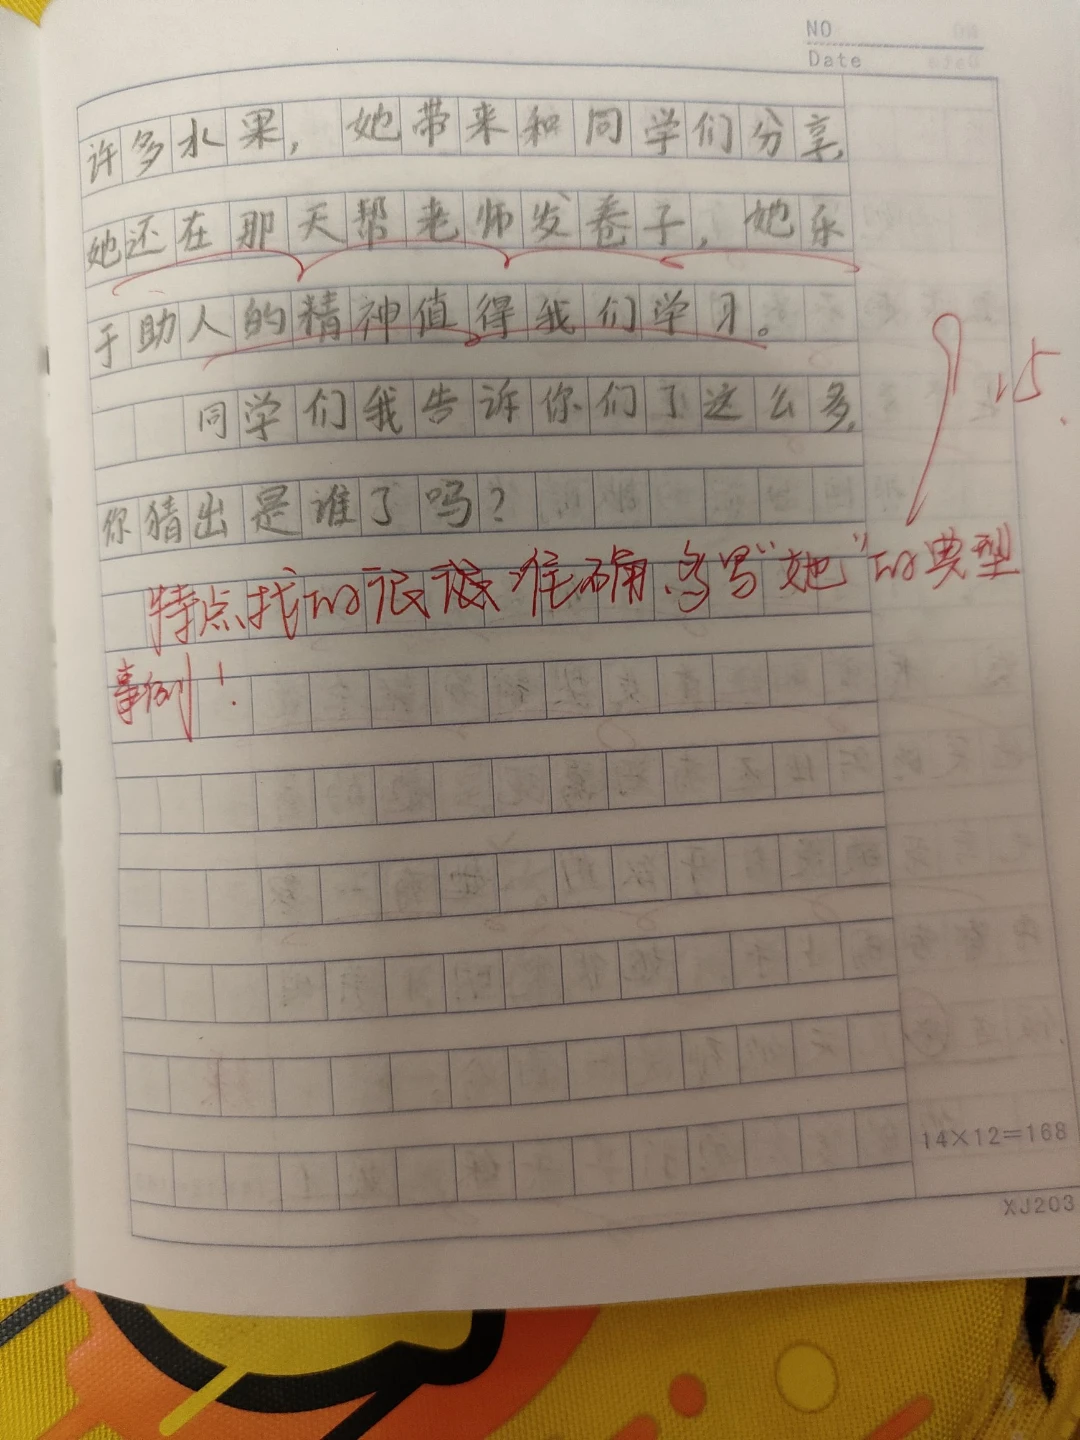 NO
Date
许多水果，她带来和同学们分享，
她还在那天帮老师发卷子，她乐
于助人的精神值得我们学习。
同学们我告诉你们了这么多，
你猜出是谁了吗？
特点找的很准确，多写“她”的典型
事例！
14×12=168
XJ203